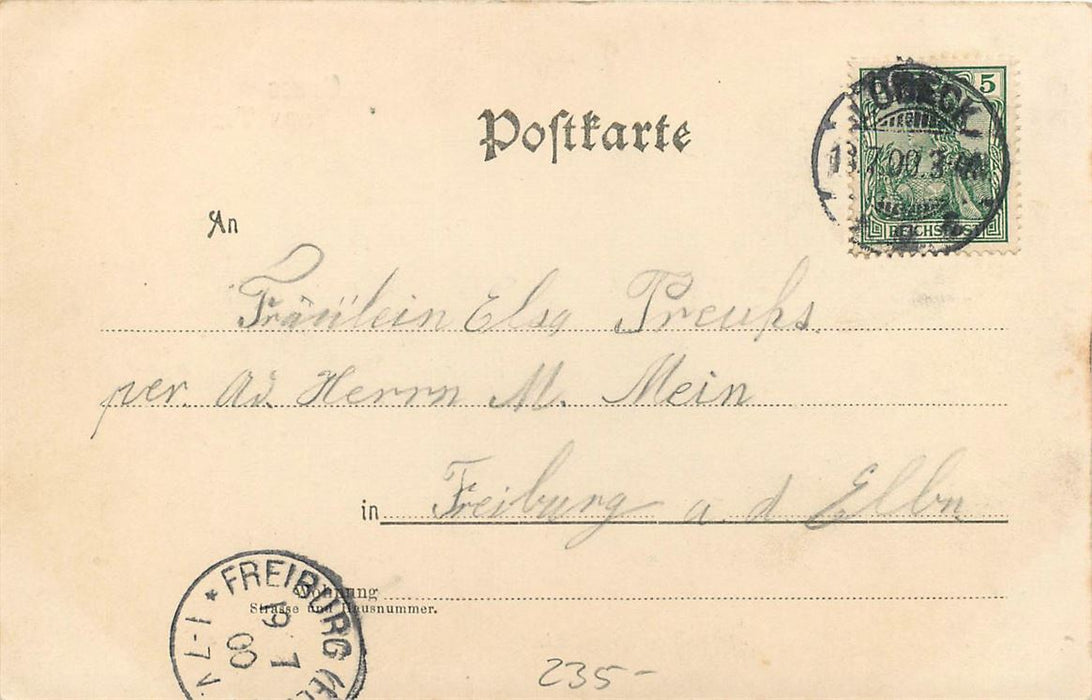 5
LÜBECK
18.7.00.3
REICHSPOST
Postkarte
An
Fräulein Elsa Preuhs
per. Ad. Herrn M. Mein
in Freiburg a. d. Elbe
Wohnung
Strasse und Hausnummer.
* FREIBURG (E
19
7
00
235-